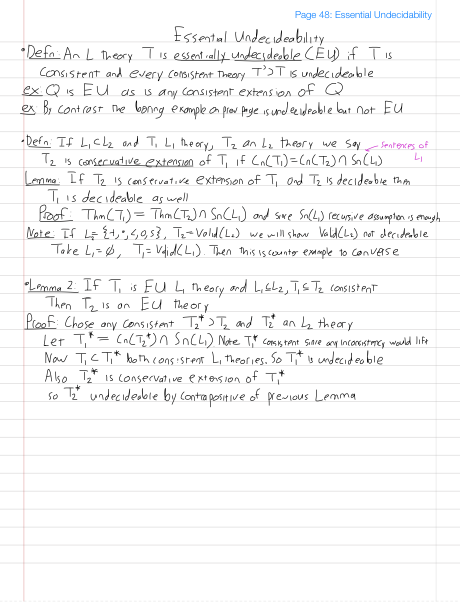 Page 48: Essential Undecidability
Essential Undecideability
• Defn: An L theory T is essentially undecideable (EU) if T is
consistent and every consistent theory T'⊃T is undecideable
ex: Q is EU as is any consistent extension of Q
ex By contrast the boring example on prev page is undecideable but not EU
• Defn: If L₁⊂L₂ and T₁ L₁ theory, T₂ an L₂ theory we say
sentences of L₁
T₂ is conservative extension of T₁ if Cn(T₁)=Cn(T₂)∩Sn(L₁)
Lemma: If T₂ is conservative extension of T₁ and T₂ is decideable then
T₁ is decideable as well
Proof: Thm(T₁) = Thm(T₂)∩Sn(L₁) and since Sn(L₁) recursive assumption is enough
Note: If L₂={+,•,<,0,s}, T₂=Valid(L₂) we will show Valid(L₂) not decideable
Take L₁=∅, T₁=Valid(L₁). Then this is counter example to converse
• Lemma 2: If T₁ is EU L₁ theory and L₁⊆L₂, T₁⊆T₂ consistent
Then T₂ is an EU theory
Proof: Chose any consistent T₂*⊃T₂ and T₂* an L₂ theory
Let T₁* = Cn(T₂*)∩Sn(L₁) Note T₁* consistent since any inconsistency would lift
Now T₁⊂T₁* both consistent L₁ theories. So T₁* is undecideable
Also T₂* is conservative extension of T₁*
so T₂* undecideable by contrapositive of previous Lemma